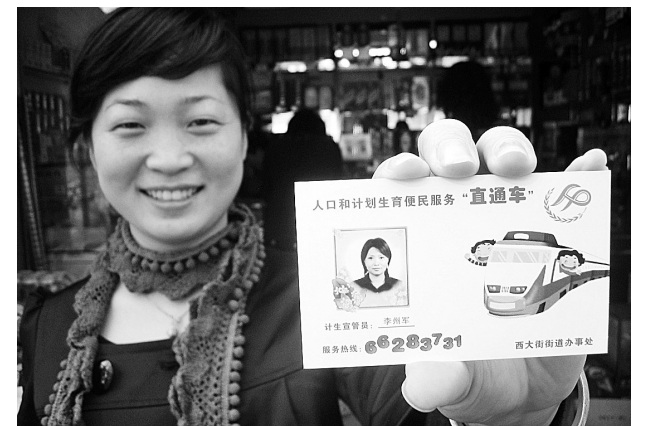 人口和计划生育便民服务“直通车”
计生宣管员：李州军
服务热线：66283731
西大街街道办事处